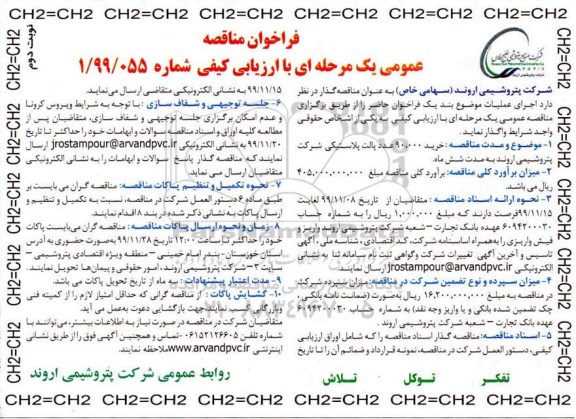 CH2=CH2 CH2=CH2 CH2=CH2 CH2=CH2 CH2=CH2 CH2=CH2
نوبت دوم
فراخوان مناقصه
عمومی یک مرحله ای با ارزیابی کیفی شماره ۱/۹۹/۰۵۵
شرکت پتروشیمی اروند (سهامی خاص) به عنوان مناقصه گذار در نظر
دارد اجرای عملیات موضوع بند یک فراخوان حاضر را از طریق برگزاری
مناقصه عمومی یک مرحله ای با ارزیابی کیفی به یکی از اشخاص حقوقی
واجد شرایط واگذار نماید.
۱- موضوع و مدت مناقصه: خرید ۹۰٫۰۰۰ عدد پالت پلاستیکی شرکت
پتروشیمی اروند به مدت شش ماه.
۲- میزان برآورد کلی مناقصه: برآورد کلی مناقصه مبلغ ۴۰۵٫۰۰۰٫۰۰۰٫۰۰۰
ریال می باشد.
۳- نحوه ارائه اسناد مناقصه: متقاضیان از تاریخ ۹۹/۱۱/۰۸ لغایت
۹۹/۱۱/۱۵ فرصت دارند که مبلغ ۱٫۰۰۰٫۰۰۰ ریال را به شماره حساب
۶۰۹۴۲۰۰۰۳۰ عهده بانک تجارت – شعبه پتروشیمی اروند واریز و
فیش واریزی را به همراه اساسنامه شرکت، کد اقتصادی، شناسه ملی، آگهی
تاسیس و آخرین آگهی تغییرات شرکت وگواهی ثبت نام سامانه ثنا به نشانی
الکترونیکی jrostampour@arvandpvc.ir ارسال نمایند
۴- میزان سپرده و نوع تضمین شرکت در مناقصه: میزان سپرده شرکت
در مناقصه به مبلغ ۱۶٫۲۰۰٫۰۰۰٫۰۰۰ ریال به صورت (ضمانت نامه بانکی،
چک تضمین شده بانکی و یا واریز وجه نقد) به شماره حساب ۶۰۹۴۲۰۰۰۳۰
عهده بانک تجارت – شعبه شرکت پتروشیمی اروند
۵- اسناد مناقصه: مناقصه گذار اسناد مناقصه را که شامل اوراق ارزیابی
کیفی، دستور العمل شرکت در مناقصه، نمونه قرارداد و ضمائم آن را تا تاریخ
۹۹/۱۱/۱۵ به نشانی الکترونیکی متقاضی ارسال می نماید.
۶- جلسه توجیهی و شفاف سازی: با توجه به شرایط ویروس کرونا
و عدم امکان برگزاری جلسه توجیهی و شفاف سازی، متقاضیان پس از
مطالعه کلیه اوراق و اسناد مناقصه سوالات و ابهامات خود را حداکثر تا تاریخ
۹۹/۱۱/۲۰ به نشانی الکترونیکی jrostampour@arvandpvc.ir ارسال
نمایند که مناقصه گذار پاسخ سوالات و ابهامات را به نشانی الکترونیکی
متقاضیان ارسال می نماید.
۷- نحوه تکمیل و تنظیم پاکات مناقصه: مناقصه گران می بایست بر
طبق ماده ۶ دستور العمل شرکت در مناقصه، نسبت به تکمیل و تنظیم و
ارسال پاکات به نشانی ذکر شده در بند ۸ اقدام نمایند.
۸- زمان و نحوه ارسال پاکات مناقصه: مناقصه گران می بایست پاکات
خود را حداکثر تا ساعت ۱۲:۰۰ تاریخ ۹۹/۱۱/۲۸ به صورت حضوری به آدرس
استان خوزستان – بندر امام خمینی – منطقه ویژه اقتصادی پتروشیمی –
سایت ۳ – شرکت پتروشیمی اروند، امور حقوقی و پیمان ها تحویل نمایند.
۹- مدت اعتبار پیشنهادات: سه ماه از تاریخ تحویل پاکات می باشد.
۱۰- گشایش پاکات: از مناقصه گرانی که حداقل امتیاز لازم را از کمیته فنی
وبازرگانی کسب نمایند جهت بازگشایی دعوت به عمل می آید.
متقاضیان شرکت در مناقصه در صورت نیاز به اطلاعات بیشتر، می توانند با
شماره تلفن ۰۶۱۵۲۱۲۶۶۰۵ تماس و همچنین آگهی فوق را از طریق نشانی
اینترنتی www.arvandpvc.ir ملاحظه نمایند.
تفکر توکل تلاش
روابط عمومی شرکت پتروشیمی اروند
CH2=CH2 CH2=CH2 CH2=CH2 CH2=CH2 CH2=CH2 CH2=CH2